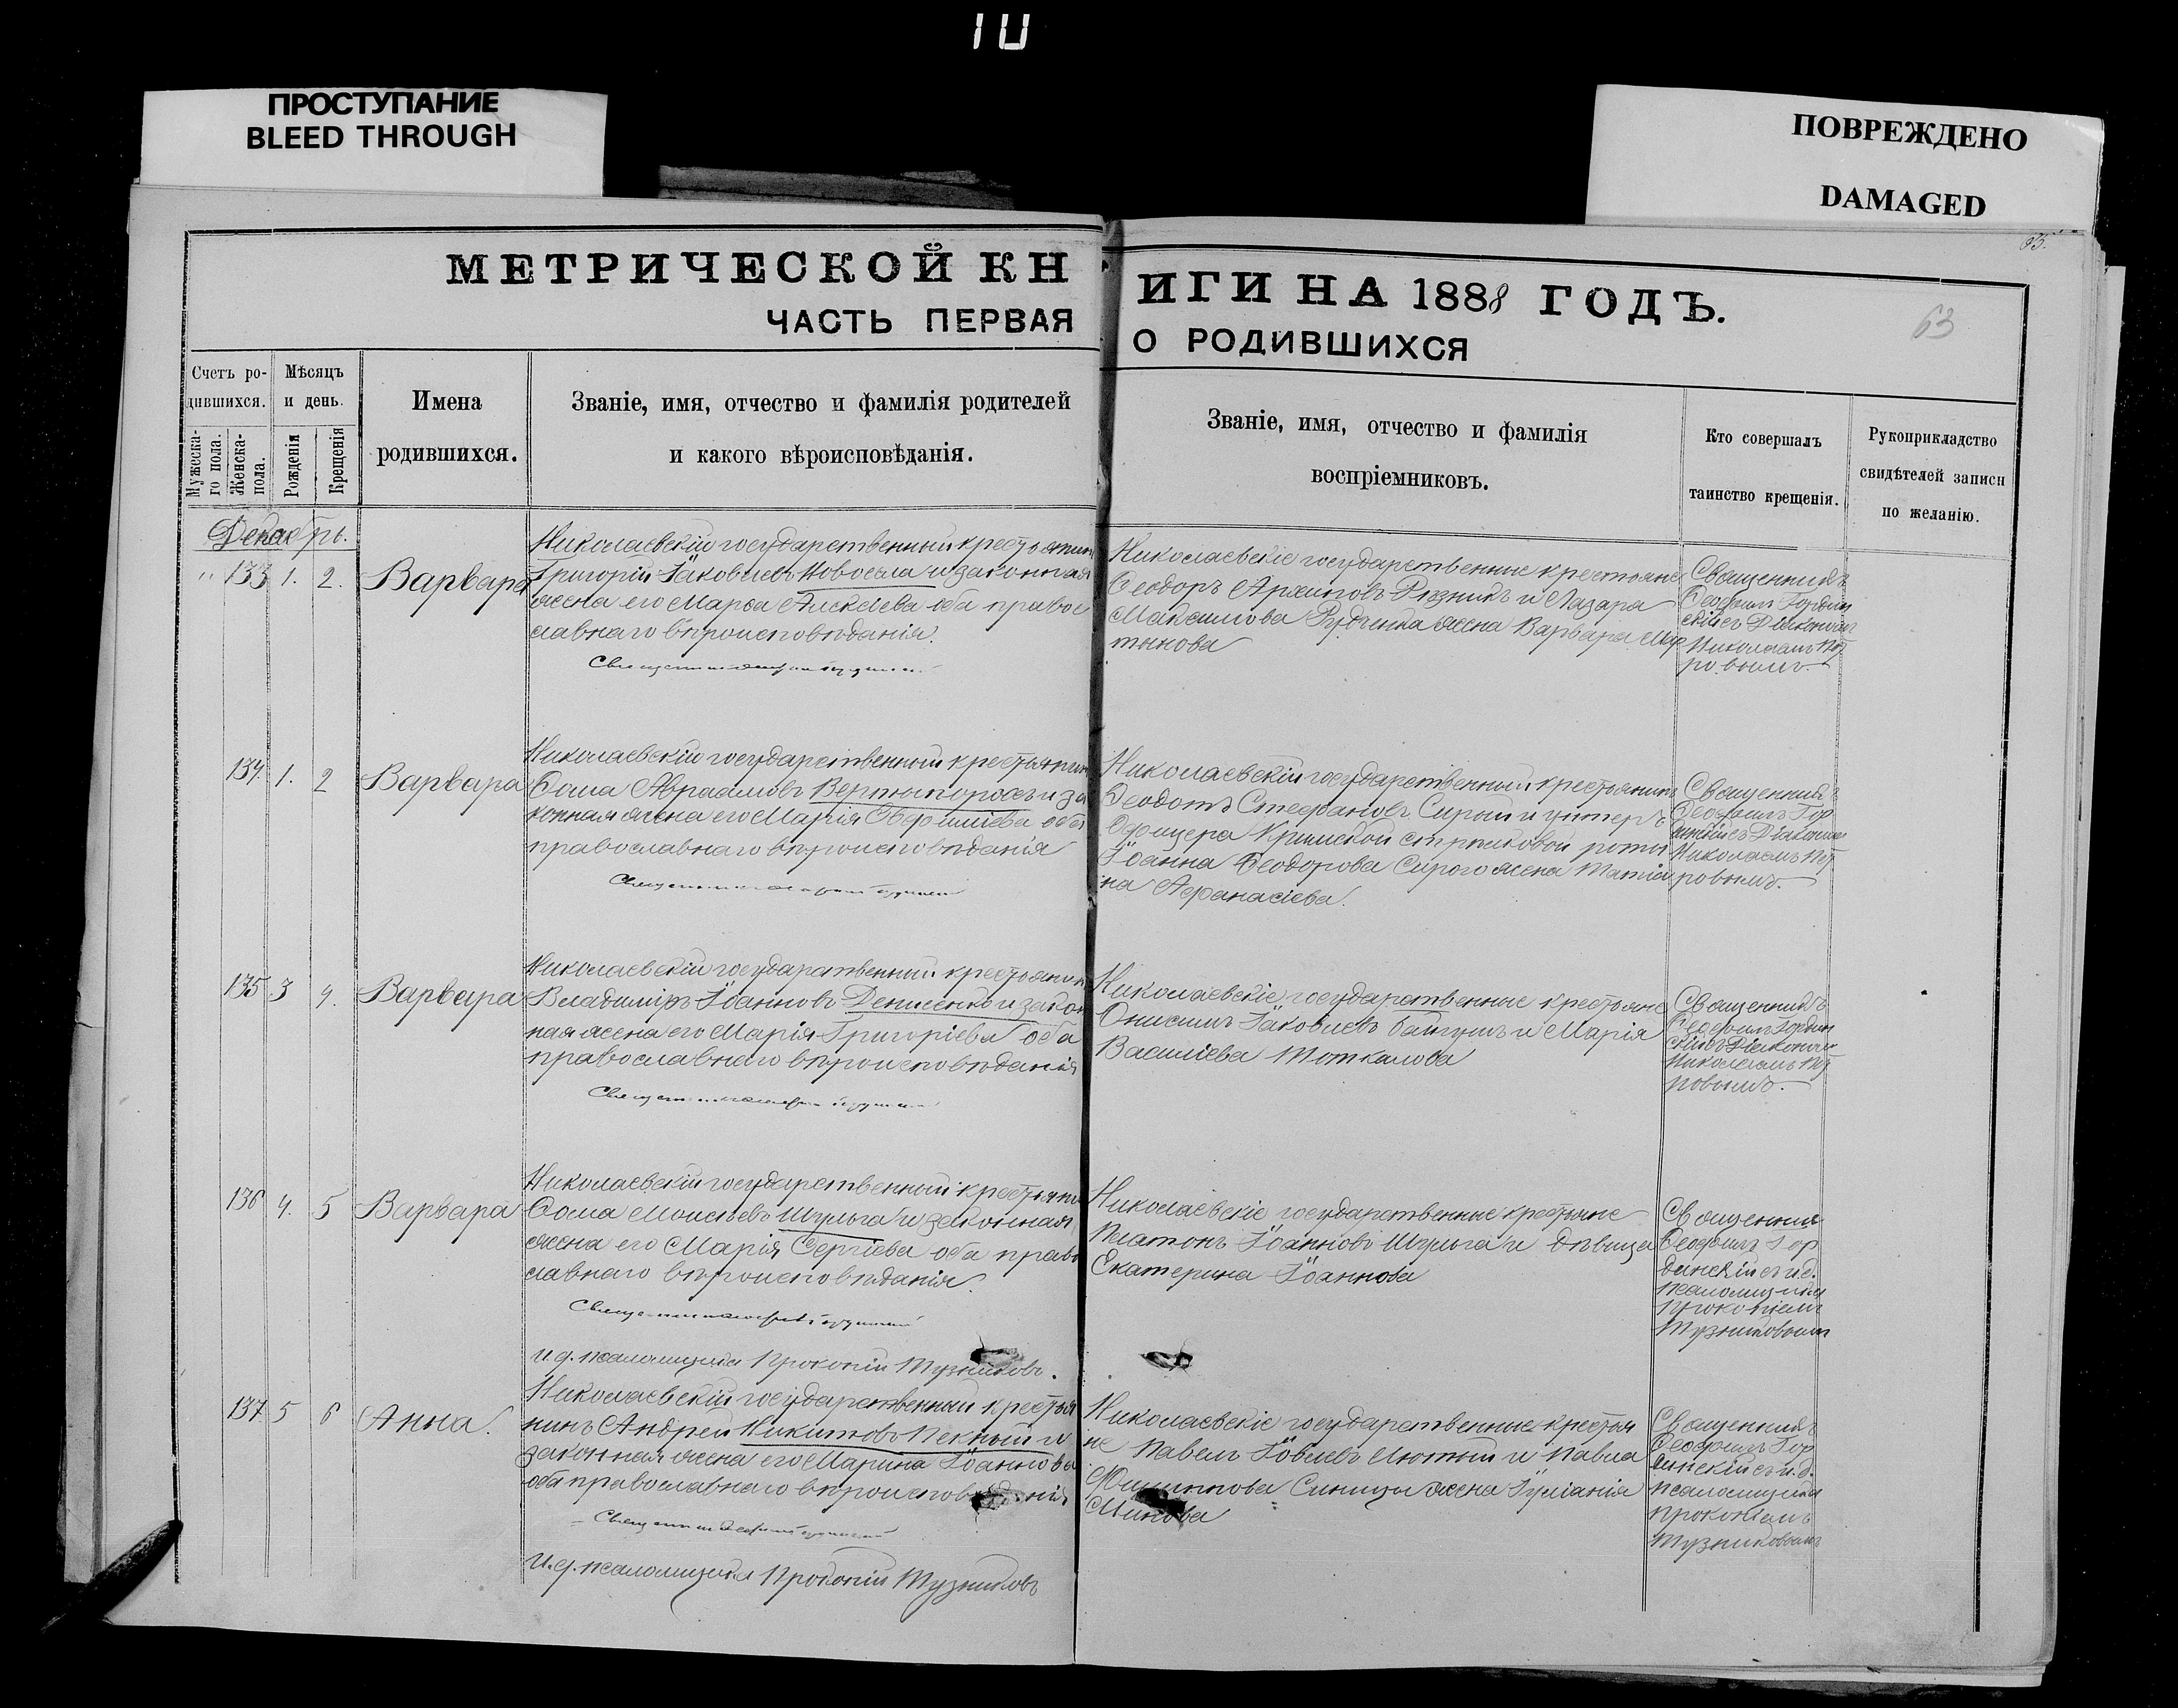 10
ПРОСТУПАНИЕ
BLEED THROUGH
ПОВРЕЖДЕНО
DAMAGED
63
МЕТРИЧЕСКОЙ КНИГИ НА 1888 ГОДЪ.
ЧАСТЬ ПЕРВАЯ О РОДИВШИХСЯ
Счетъ родившихся.
Мужескаго пола.
Женска-пола.
Мѣсяцъ и день.
Рожденія
Крещенія
Имена родившихся.
Званіе, имя, отчество и фамилія родителей
и какого вѣроисповѣданія.
Званіе, имя, отчество и фамилія
воспріемниковъ.
Кто совершалъ
таинство крещенія.
Рукоприкладство
свидѣтелей записи
по желанію.
Декабрь.
" 133 1. 2. Варвара
Николаевскій государственный крестьянин
Григорій Іаковлевъ Новосела и законная
жена его Марѳа Алексіева оба правос
славнаго вѣроисповѣданія.
Николаевскіе государственные крестьяне
Ѳеодоръ Архиповъ Рѣзникъ и Лазаря
Максимова Рудченка жена Варвара Мар
тынова
Священникъ
Ѳеофилъ Гордин
скій съ Діакономъ
Николаемъ Пет
ровымъ.
134. 1. 2 Варвара
Николаевскій государственный крестьянин
Ѳома Авраамовъ Вертыпорохъ и за
конная жена его Марія Евфиміева оба
православнаго вѣроисповѣданія
Николаевскій государственный крестьянинъ
Ѳеодотъ Стефановъ Сирый и унтеръ
Офицера Крымской стрѣлковой роты
Іоанна Ѳеодорова Сирого жена Татія
на Аѳанасіева.
Священникъ
Ѳеофилъ Гор
динскій съ Діакономъ
Николаемъ Пет
ровымъ.
135 3 4. Варвара
Николаевскій государственный крестьянин
Владиміръ Іоанновъ Денисенко и закон
ная жена его Марія Григоріева оба
православнаго вѣроисповѣданія
Николаевскіе государственные крестьяне
Онисимъ Іаковлевъ Байгушъ и Марія
Василіева Моткалова
Священникъ
Ѳеофилъ Гордин
скій съ Діакономъ
Николаемъ Пет
ровымъ.
136 4. 5 Варвара
Николаевскій государственный крестьянин
Ѳома Моисѣевъ Шульга и законная
жена его Марія Сергіева оба право
славнаго вѣроисповѣданія.
и.д. псаломщика Прокопій Тузниковъ.
Николаевскіе государственные крестьяне
Платонъ Іоанновъ Шульга и дѣвица
Екатерина Іоаннова
Священник
Ѳеофилъ Гор
динскій съ и.д.
псаломщика
Прокопіемъ
Тузниковымъ
137 5 6 Анна.
Николаевскій государственный крестья
нинъ Андрей Никитовъ Пекный и
законная жена его Марина Іоаннова
оба православнаго вѣроисповѣданія
и.д. псаломщика Прокопій Тузниковъ
Николаевскіе государственные крестья
не Павелъ Іовлевъ Лютый и Павла
Филиппова Синицы жена Іуліанія
Минова
Священникъ
Ѳеофилъ Гор
динскій съ и.д.
псаломщика
Прокопіемъ
Тузниковымъ